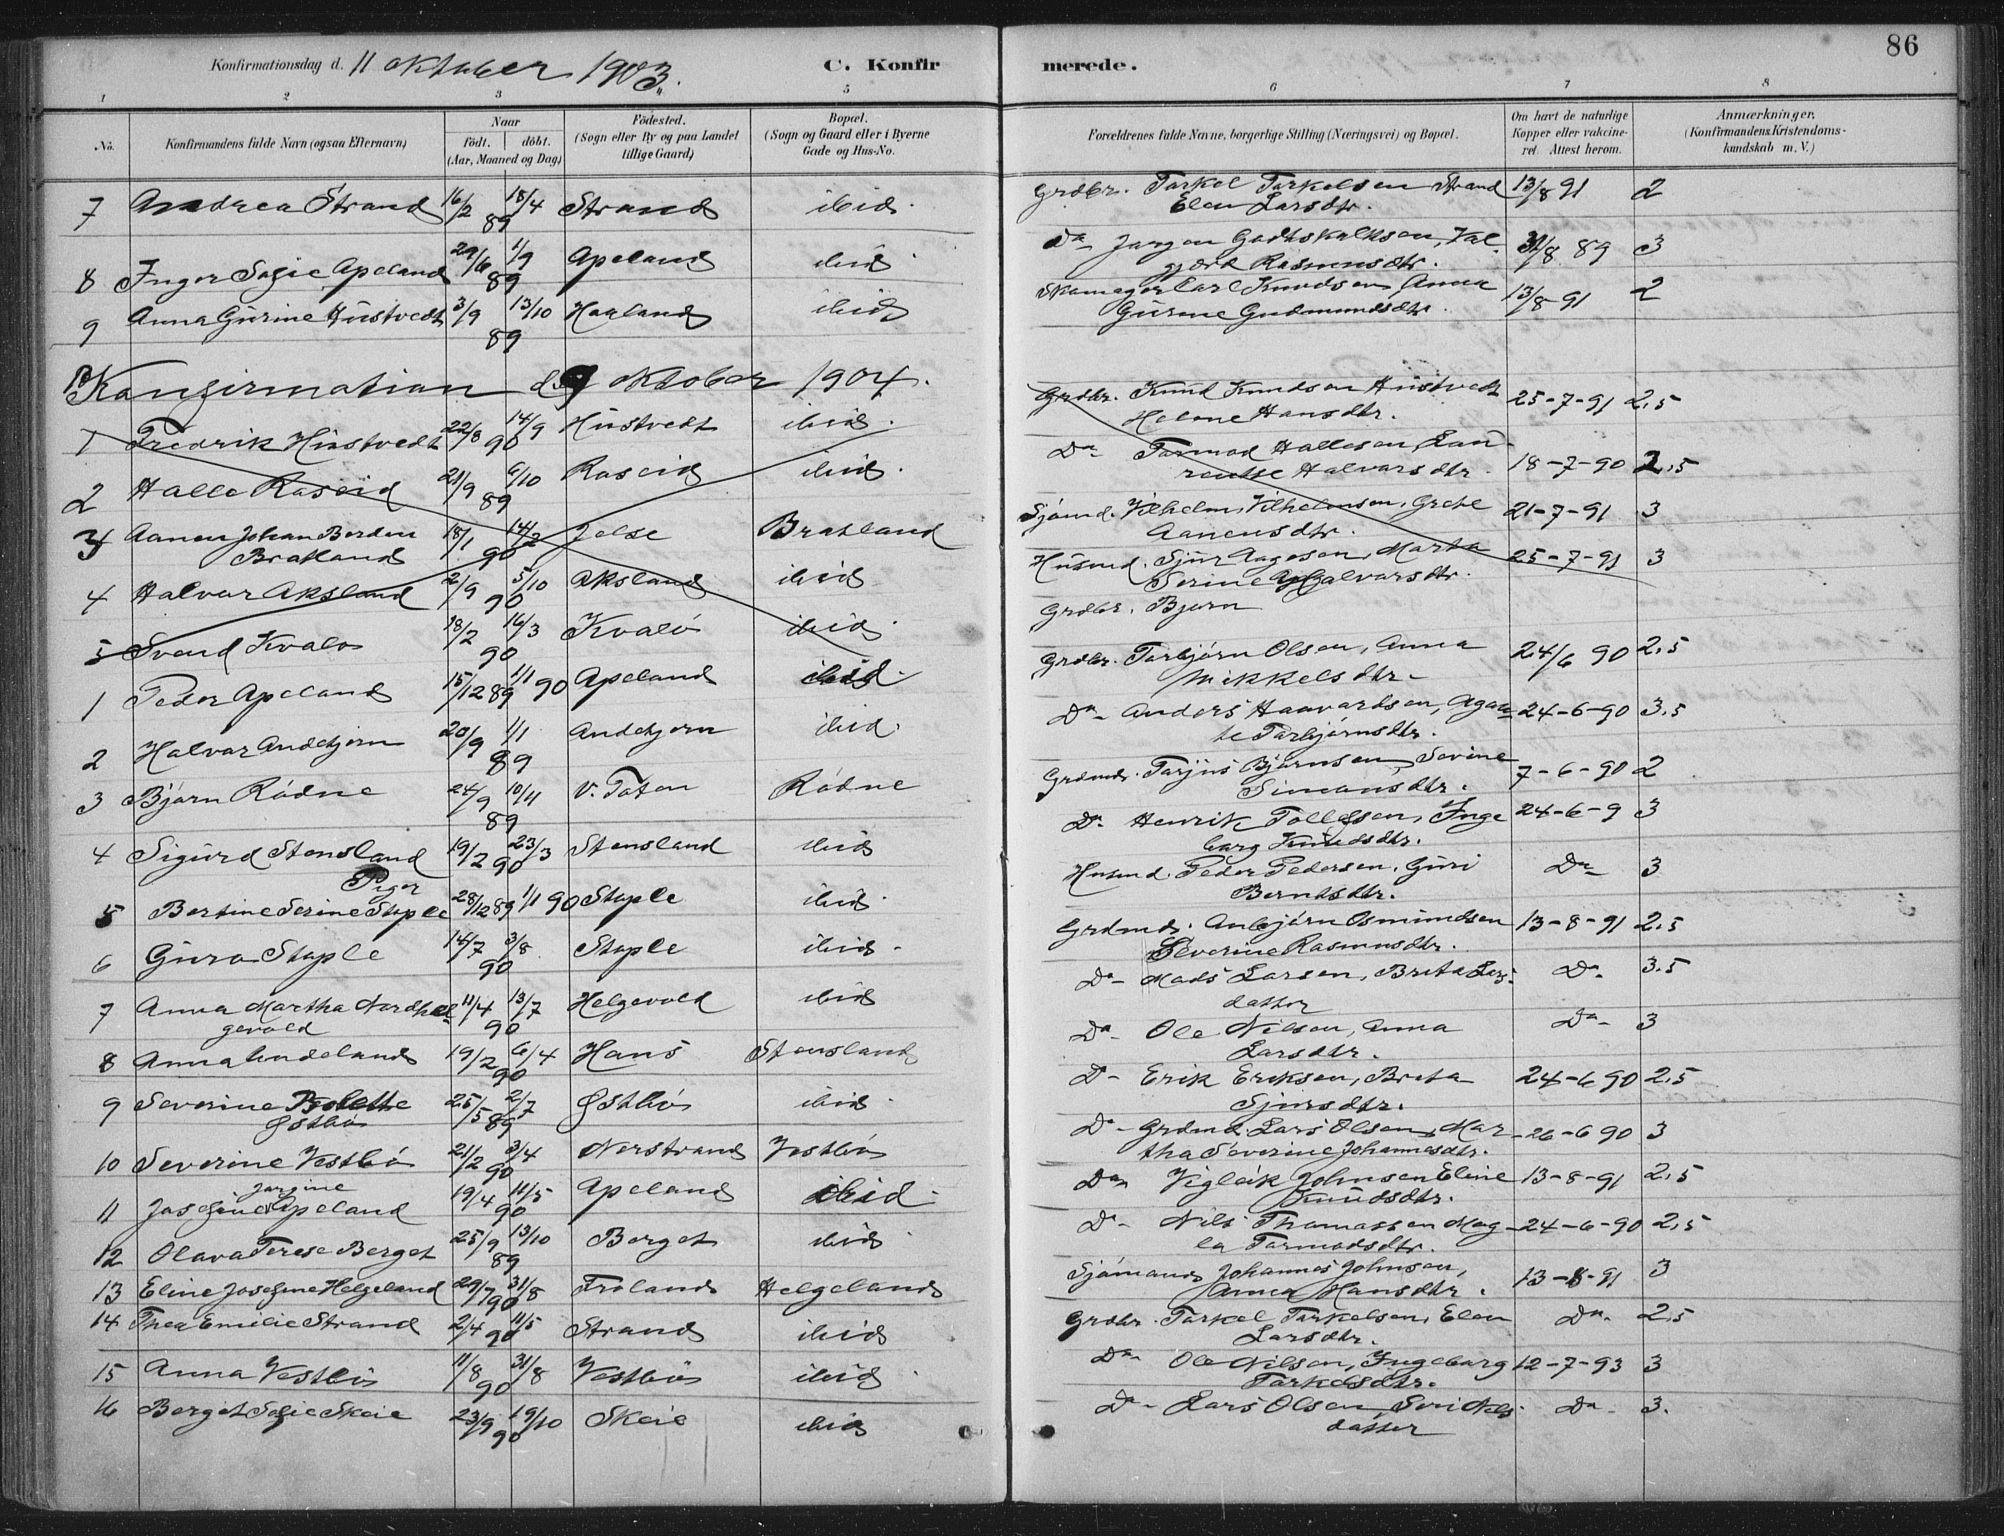 Konfirmationsdag d. 11 oktober 1903. C. Konfir merede. 86
1 2 3 5 6 7 8
No. Konfirmandens fulde Navn (ogsaa Efternavn) Naar født. døbt. (Aar, Maaned og Dag) Fødested. (Sogn eller By og paa Landet tillige Gaard) Bopæl. (Sogn og Gaard eller i Byerne Gade og Hus-No. Forældrenes fulde Navne, borgerlige Stilling (Næringsvei) og Bopæl. Om havt de naturlige Kopper eller vakcineret. Attest herom. Anmærkninger. (Konfirmandens Kristendomskundskab m. V.)
7 Andrea Strand 16/2 18/4 89 Strand ibid. Grdbr. Torkel Torkelsen Strand Elen Larsdtr. 13/8 91 2
8 Inger Sofie Apeland 29/6 1/9 89 Apeland ibid. Do Jørgen Godtskalksen, Valgjerd Rasmusdtr. 31/8 89 3
9 Anna Gurine Hustvedt 3/9 13/10 89 Haaland ibid. Skomager Carl Knudsen, Anna Gurine Gudmundsdtr. 13/8-91 2
Konfirmation d. 9 oktober 1904.
1 Fredrik Hustvedt 22/8 14/9 90 Hustvedt ibid. Grdbr. Knud Knudsen Hustvedt Helene Hansdtr. 25-7-91 2,5
2 Halle Raseid 21/9 6/10 89 Raseid ibid. Do Tormod Hallesen, Laurentse Halvorsdtr. 18-7-90 2,5
3 Aanen Johan Berden Bratland 18/1 14/2 90 Jelse Bratland Sjømd. Vilhelm Vilhelmsen, Grete Aanensdtr. 21-7-91 3
4 Halvor Aksland 2/9 5/10 90 Aksland ibid Husmd. Sjur Aagesen, Marta Serine Halvorsdtr. 25-7-91 3
5 Svend Kvalø 18/2 16/3 90 Kvalø ibid. Grdbr. Bjørn
1 Peder Apeland 15/12 89 1/1 90 Apeland ibid. Grdbr. Torbjørn Olsen, Anna Mikkelsdtr. 24/6 90 2,5
2 Halvor Andebjorn 20/9 1/1 89 Andebjorn ibid. Do Anders Haavardsen, Agate Torbjørnsdtr. 24-6-90 3,5
3 Bjørn Rødne 24/9 10/11 89 V. Toten Rødne Grdmd. Torjus Bjørnsen, Sevine Simonsdtr. 7-6-90 2
4 Sigurd Stensland 19/2 23/3 90 Stensland ibid Do Henrik Tollefsen, Ingeborg Knudsdtr. 24-6-9 3
Piger
5 Bertine Serine Stople 28/12 89 1/1 90 Stople ibid. Husmd. Peder Pedersen, Guri Berntsdtr. Do 3
6 Guro Stople 14/7 3/8 90 Stople ibid. Grdmd. Anbjørn Osmundsen Severine Rasmusdtr. 13-8-91 2,5
7 Anna Martha Nordhelgevold 11/4 13/7 90 Helgevold ibid Do Mads Larsen, Brita Larsdatter Do. 3,5
8 Anna Undeland 19/2 6/4 90 Hans Stensland Do Ole Nilsen, Anna Larsdtr. Do 3
9 Severine Bolette Østbø 25/5 2/7 89 Østbø ibid. Do Erik Eriksen, Brita Sjursdtr. 24-6 90 2,5
10 Severine Vestbø 21/2 3/4 90 Nerstrand Vestbø Do Grdmd. Lars Olsen, Martha Severine Johannesdtr. 26-6 90 3
11 Josefine Jørgine Apeland 19/4 11/5 90 Apeland ibid. Do Vigleik Johnsen Eline Knudsdtr. 13-8-91 2,5
12 Olava Terese Berget 25/9 13/10 89 Berget ibid. Do Nils Thomassen Magla Tormodsdtr. 24-6-90 2,5
13 Eline Josefine Helgeland 29/7 31/8 90 Froland Helgeland Sjømand Johannes Johnsen, Anna Hansdtr. 13-8-91 3
14 Thea Emilie Strand 2/4 11/5 90 Strand ibid Grdbr. Torkel Torkelsen, Elen Larsdtr. Do. 2,5
15 Anna Vestbø 11/8 31/8 90 Vestbø ibid. Do Ole Nilsen, Ingeborg Torkelsdtr. 12-7-93 3
16 Berget Sofie Skeie 23/9 19/10 90 Skeie ibid Do Lars Olsen Siri Nilsdatter Do. 3.